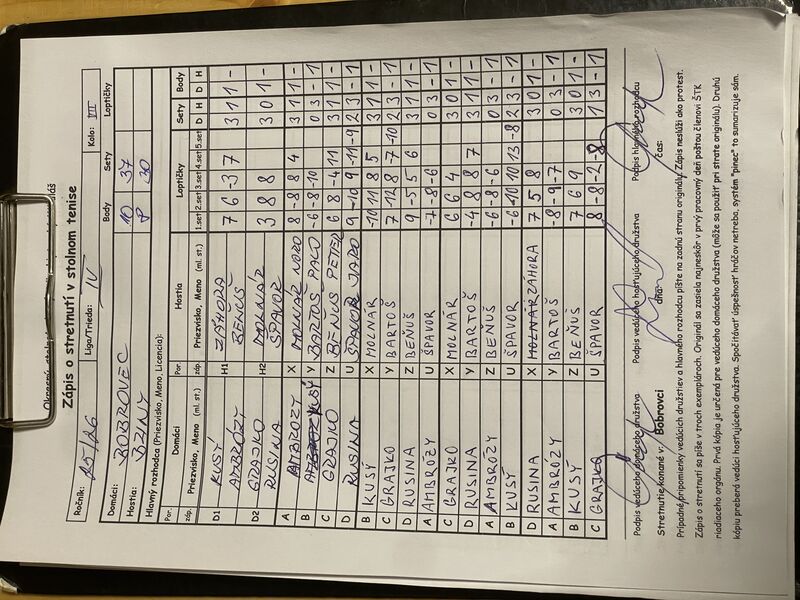 Zápis o stretnutí v stolnom tenise
Ročník: 25/26 Liga/Trieda: IV Kolo: VII
Body Sety Loptičky
Domáci: BOBROVEC 10 37
Hostia: BZINY 8 30
Hlavný rozhodca (Priezvisko, Meno, Licencia):
Por. Domáci Por. Hostia Loptičky Sety Body
záp. Priezvisko, Meno (ml. st.) záp. Priezvisko, Meno (ml. st.) 1.set 2.set 3.set 4.set 5.set D H D H
D1 KUSÝ H1 ZÁHORA 7 6 -3 7 3 1 1 -
AMBRÓZY BEŇUŠ
D2 GRAJKO H2 MOLNÁR 3 8 8 3 0 1 -
RUSINA ŠPAVOR
A AMBRÓZY X MOLNÁR NORO 8 -8 8 4 3 1 1 -
B KUSÝ Y BARTOŠ PALO -6 -8 -10 0 3 - 1
C GRAJKO Z BEŇUŠ PETER 6 8 -4 11 3 1 1 -
D RUSINA U ŠPAVOR JARO 9 -10 9 -11 -9 2 3 - 1
B KUSÝ X MOLNÁR -10 11 8 5 3 1 1 -
C GRAJKO Y BARTOŠ 7 12 8 -7 -10 2 3 - 1
D RUSINA Z BEŇUŠ 9 -5 5 6 3 1 1 -
A AMBRÓZY U ŠPAVOR -7 -8 -6 0 3 - 1
C GRAJKO X MOLNÁR 6 6 4 3 0 1 -
D RUSINA Y BARTOŠ -4 8 8 7 3 1 1 -
A AMBRÓZY Z BEŇUŠ -6 -8 -6 0 3 - 1
B KUSÝ U ŠPAVOR -6 -10 10 13 -8 2 3 - 1
D RUSINA X MOLNÁR ZÁHORA 7 5 8 3 0 1 -
A AMBRÓZY Y BARTOŠ -8 -9 -7 0 3 - 1
B KUSÝ Z BEŇUŠ 7 6 9 3 0 1 -
C GRAJKO U ŠPAVOR 8 -8 -2 -8 1 3 - 1
Podpis vedúceho domáceho družstva Podpis vedúceho hosťujúceho družstva Podpis hlavného rozhodcu
Stretnutie konané v: Bobrovci dňa: čas:
Prípadné pripomienky vedúcich družstiev a hlavného rozhodcu píšte na zadnú stranu originálu. Zápis neslúži ako protest.
Zápis o stretnutí sa píše v troch exemplároch. Originál sa zasiela najneskôr v prvý pracovný deň poštou členovi ŠTK
riadiaceho orgánu. Prvá kópia je určená pre vedúceho domáceho družstva (môže sa použiť pri strate originálu). Druhú
kópiu preberá vedúci hosťujúceho družstva. Spočítavať úspešnosť hráčov netreba, systém "pinec" to sumarizuje sám.